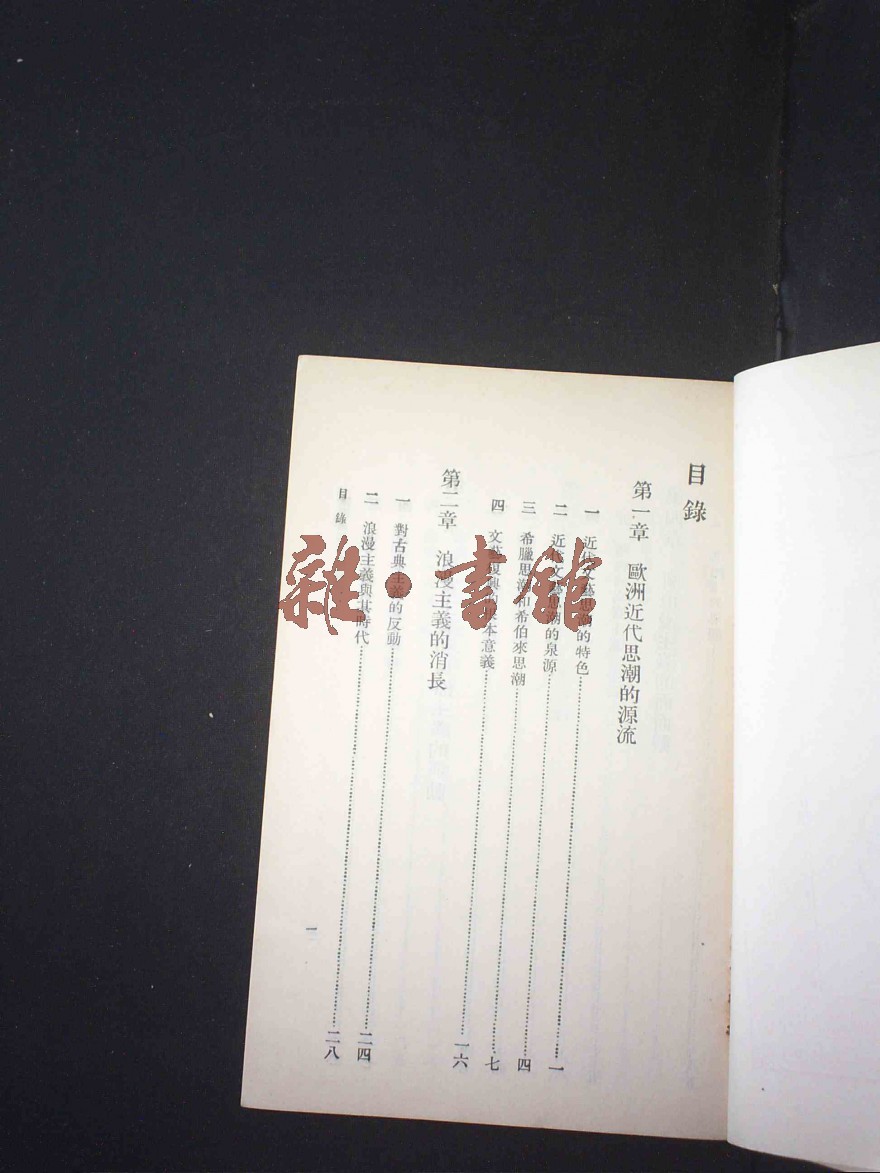 目錄
第一章 歐洲近代思潮的源流
一 近代文藝思潮的特色……一
二 近代文藝思潮的泉源……四
三 希臘思潮和希伯來思潮……七
四 文藝復興的根本意義……一六
第二章 浪漫主義的消長
一 對古典主義的反動……二四
二 浪漫主義與其時代……二八
目錄
一
雜·書館